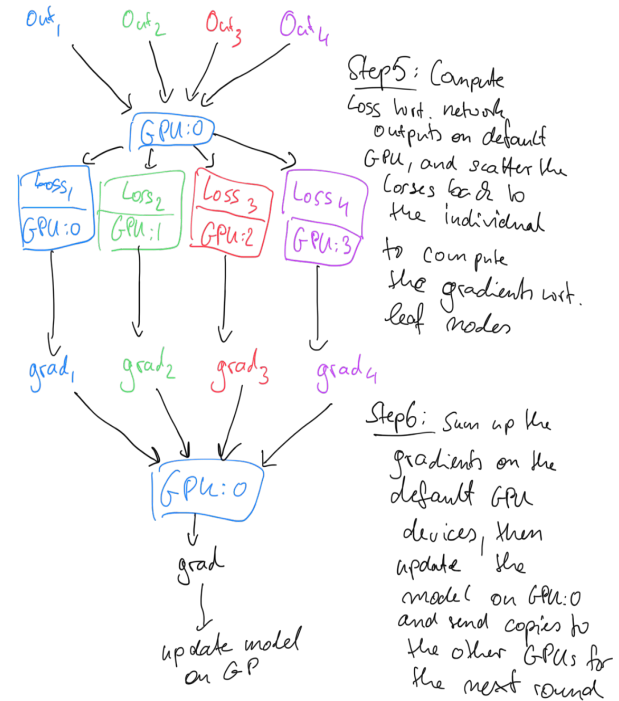 Out1 Out2 Out3 Out4
GPU:0
Loss1 Loss2 Loss3 Loss4
GPU:0 GPU:1 GPU:2 GPU:3
grad1 grad2 grad3 grad4
GPU:0
grad
update model
on GP
Step5: Compute
Loss wrt. network
outputs on default
GPU, and scatter the
losses back to
the individual
to compute
the gradients wrt.
leaf nodes
Step6: Sum up the
gradients on the
default GPU
devices, then
update the
model on GPU:0
and send copies to
the other GPUs for
the next round